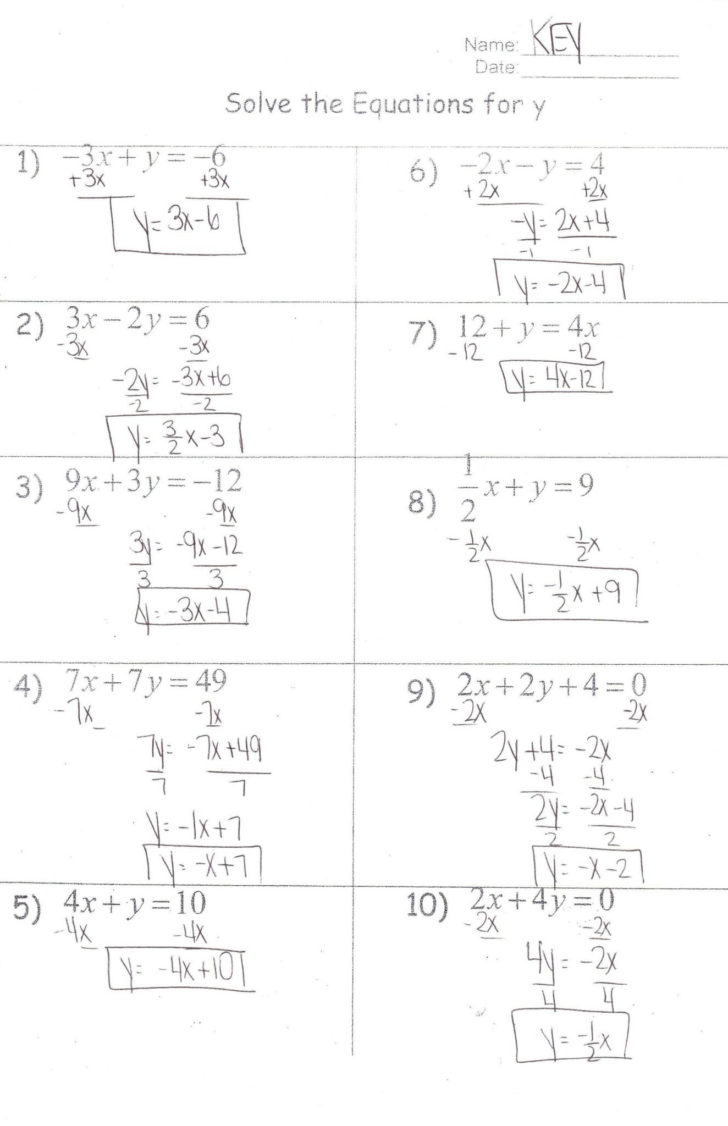 Name: KEY
Date:
Solve the Equations for y
1) -3x + y = -6
+3x +3x
y = 3x-6
2) 3x - 2y = 6
-3x -3x
-2y = -3x+6
-2 -2
y = 3/2 x-3
3) 9x + 3y = -12
-9x -9x
3y = -9x-12
3 3
y = -3x-4
4) 7x + 7y = 49
-7x -7x
7y = -7x+49
7 7
y = -1x+7
y = -x+7
5) 4x + y = 10
-4x -4x
y = -4x+10
6) -2x - y = 4
+2x +2x
-y = 2x+4
-1 -1
y = -2x-4
7) 12 + y = 4x
-12 -12
y = 4x-12
8) 1/2 x + y = 9
-1/2 x -1/2 x
y = -1/2 x +9
9) 2x + 2y + 4 = 0
-2x -2x
2y+4 = -2x
-4 -4
2y = -2x-4
2 2
y = -x-2
10) 2x + 4y = 0
-2x -2x
4y = -2x
4 4
y = -1/2 x